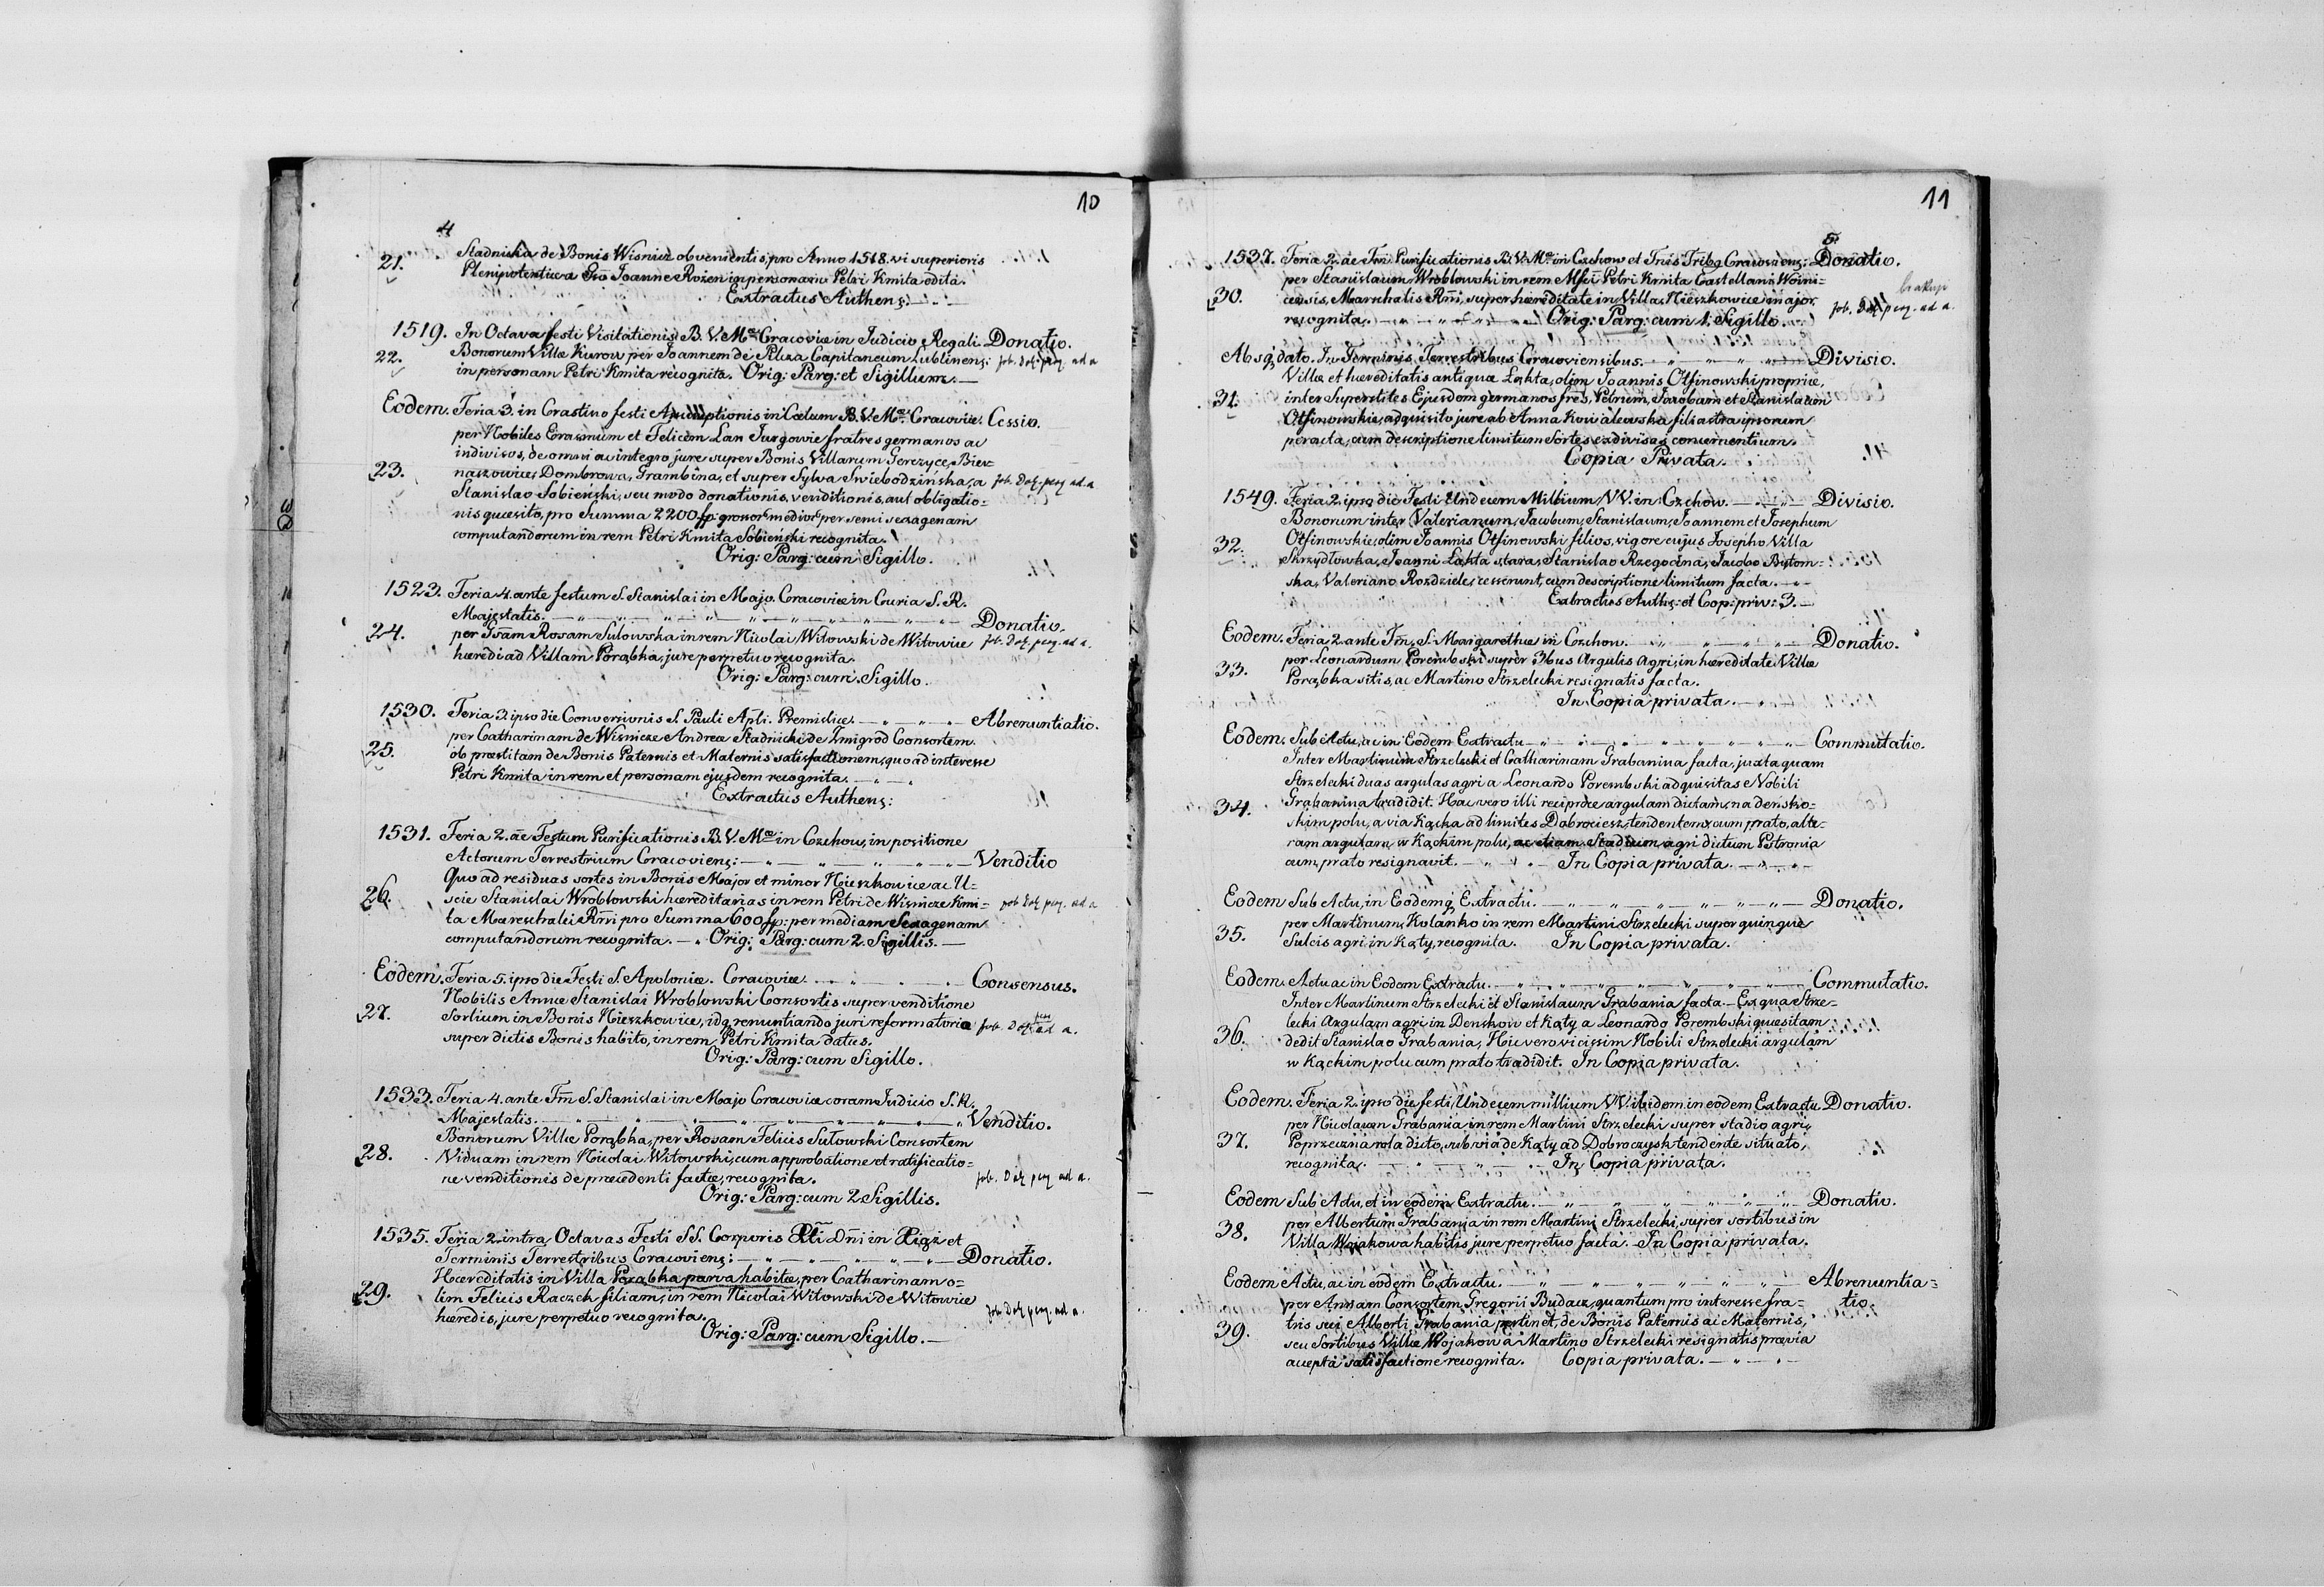 10
4
21. Stadnicka de Bonis Wisnicz obvenientis, pro Anno 1518. vi superioris
Plenipotentiæ a Joanne Rożen in personam Petri Kmita edita.
Extractus Authens:
1519. In Octava festi Visitationis B. V. Mæ Cracoviæ in Judicio Regali Donatio.
22. Bonorum Villæ Kurow per Joannem de Pilcza Capitaneum Lublinens:
in personam Petri Kmita recognita. Orig: Parg: et Sigillum.
Eodem. Feria 3. in Crastino festi Assumptionis in Cœlum B. V. Mæ Cracoviæ. Cessio.
per Nobiles Erasmum et Felicem Lan Jurgowie fratres germanos ac
indivisos, de omni ac integro jure super Bonis Villarum Gerczyce, Bier-
23. naszowice, Dombrowa, Grambina, et super Sylva Swiebodzińska, a
Stanislao Sobieński, seu modo donationis, venditionis, aut obligatio-
nis quæsito, pro Summa 2200 fp: grossor medior per semi sexagenam
computandorum in rem Petri Kmita Sobieński recognita.
Orig: Parg: cum Sigillo.
1523. Feria 4. ante festum S. Stanislai in Majo. Cracoviæ in Curia S. R.
Majestatis. Donatio.
24. per Gsam Rosam Sulowska in rem Nicolai Witowski de Witowice
hæredi ad Villam Porąbka, jure perpetuo recognita.
Orig: Parg: cum Sigillo.
1530. Feria 3. ipso die Conversionis S. Pauli Apli. Premisliæ. Abrenuntiatio.
per Catharinam de Wisnicze Andreæ Stadnicki de Zmigrod Consortem.
25. ob præstitam de Bonis Paternis et Maternis satisfactionem, quo ad interesse
Petri Kmita in rem et personam ejusdem recognita.
Extractus Authens:
1531. Feria 2. ae Festum Purificationis B. V. Mæ in Czchow, in positione
Actorum Terrestrium Cracoviens: Venditio
Quo ad residuas sortes in Bonis Major et minor Nieszkowice ac U-
26. scie Stanislai Wroblowski hæreditarias in rem Petri de Wisnicze Kmi-
ta Mareschalci Rni pro Summa 600 fp: per mediam Sexagenam
computandorum recognita. Orig: Parg: cum 2. Sigillis.
Eodem. Feria 5. ipso die Festi S. Apoloniæ. Cracoviæ. Consensus.
Nobilis Annæ Stanislai Wroblowski Consortis super venditione
27. Sortium in Bonis Nieszkowice, idq renuntiando juri reformatorio
super dictis Bonis habito, in rem Petri Kmita datus.
Orig: Parg: cum Sigillo.
1533. Feria 4. ante Fm S. Stanislai in Majo Cracoviæ coram Judicio S. R.
Majestatis. Venditio.
Bonorum Villæ Porąbka, per Rosam Felicis Sułowski Consortem
28. Viduam in rem Nicolai Witowski, cum approbatione et ratificatio-
ne venditionis de præcedenti factæ, recognita.
Orig: Parg: cum 2 Sigillis.
1535. Feria 2. intra Octavas Festi SS. Corporis Xti Dni in Xigż et
Terminis Terrestribus Cracoviens: Donatio.
Hæreditatis in Villa Porąbka parva habitæ, per Catharinam o-
29. lim Felicis Raczek filiam, in rem Nicolai Witowski de Witowice
hæredis, jure perpetuo recognita.
Orig: Parg: cum Sigillo.
11
5
1537. Feria 2. ae Fm Purificationis B. V. Mæ in Czchow et Tris Tribq Cracoviens: Donatio.
per Stanislaum Wroblowski in rem Mfci Petri Kmita Castellani Woini-
30. censis, Marschalis Rni, super hæreditate in Villa Nieszkowice major,
recognita. Orig: Parg: cum 1. Sigillo.
Absq dato. In Terminis Terrestribus Cracoviensibus. Divisio.
Villæ et hæreditatis antiquæ Łąkta, olim Joannis Otfinowski propriæ,
31. inter Superstites Ejusdem germanos fres, Petrum, Jacobum et Stanislaum
Otfinowskie, adquisito jure ab Anna Kowalewska filiastra ipsorum
peracta, cum descriptione limitum Sortes exdivisas concernentium.
Copia Privata.
1549. Feria 2. ipso die Festi Undecim Millium VV. in Czchow. Divisio.
Bonorum inter Valerianum, Jacobum, Stanislaum, Joannem et Josephum
32. Otfinowskie, olim Joannis Otfinowski filios, vigore cujus Josepho Villa
Skrzydłowska, Joanni Łąkta stara, Stanislao Rzegocina, Jacobo Bytom-
ska, Valeriano Rozdziele, cesserunt, cum descriptione limitum facta.
Extractus Auths: et Cop: priv: 3.
Eodem. Feria 2. ante Fm S. Margarethæ in Czchow. Donatio.
per Leonardum Porembski super 3bus Argulis Agri, in hæreditate Villæ
33. Porąbka sitis, ac Martino Strzelecki resignatis facta.
In Copia privata.
Eodem. Sub Actu, ac in Eodem Extractu Commutatio.
Inter Martinum Strzelecki et Catharinam Grabanina facta, juxta quam
Strzelecki duas argulas agri a Leonardo Porembski adquisitas Nobili
34. Grabanina tradidit. Hæc vero illi reciproce argulam dictam, na deńsko-
skim polu, a via Kącka ad limites Dobrociesz, tendentem, cum prato, alte-
ram argulam, w Kąckim polu, ac etiam Stadium agri dictum Patronia
cum prato resignavit. In Copia privata.
Eodem Sub Actu, in Eodemq Extractu. Donatio.
per Martinum, Kolanko in rem Martini Strzelecki super quinque
35. Sulcis agri in Kąty, recognita. In Copia privata.
Eodem. Actu ac in Eodem Extractu. Commutatio.
Inter Martinum Strzelecki et Stanislaum Grabania facta. Ex qua Strze-
lecki Argulam agri in Denskow et Kąty a Leonardo Porembski quæsitam
36. dedit Stanislao Grabania, Hic vero vicissim Nobili Strzelecki argulam
w Kąckim polu cum prato tradidit. In Copia privata.
Eodem. Feria 2. ipso die festi Undecem millium VV. ibidem in eodem Extractu Donatio.
per Nicolaum Grabania in rem Martini Strzelecki super stadio agri,
37. Poprzeczna rola dicto, sub via de Kąty ad Dobroczysk tendente situato,
recognita. In Copia privata.
Eodem Sub Actu, et in eodem Extractu. Donatio.
per Albertum Grabania in rem Martini Strzelecki, super sortibus in
38. Villa Wojakowa habitis jure perpetuo facta. In Copia privata.
Eodem Actu, ac in eodem Extractu. Abrenuntia-
per Annam Consortem Gregorii Budacz, quantum pro interesse fra- tio.
39. tris sui Alberti Grabania pertinet, de Bonis Paternis ac Maternis,
seu Sortibus Villæ Wojakowa Martino Strzelecki resignatis prævia
accepta satisfactione recognita. Copia privata.